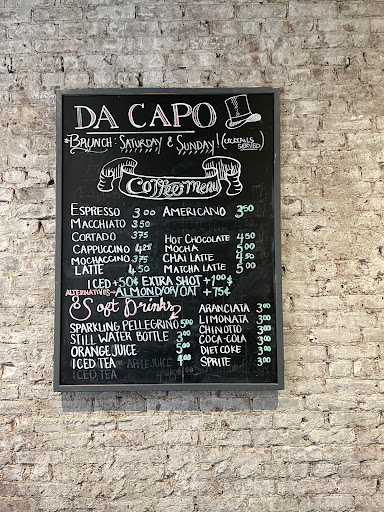 DA CAPO
*BRUNCH: SATURDAY & SUNDAY! (COCKTAILS SERVED)
Coffee Menu
ESPRESSO 3.00 AMERICANO 3.50
MACCHIATO 3.50
CORTADO 3.75 HOT CHOCOLATE 4.50
CAPPUCCINO 4.25 MOCHA 5.00
MOCHACCINO 3.75 CHAI LATTE 4.50
LATTE 4.50 MATCHA LATTE 5.00
ICED +50¢ EXTRA SHOT +1.00$
ALTERNATIVES- ALMOND OR OAT +75¢
& Soft Drinks
SPARKLING PELLEGRINO 5.00
STILL WATER BOTTLE 3.00
ORANGE JUICE 5.00
ICED TEA APPLE JUICE 4.00
ICED TEA
ARANCIATA 3.00
LIMONATA 3.00
CHINOTTO 3.00
COCA-COLA 3.00
DIET COKE 3.00
SPRITE 3.00